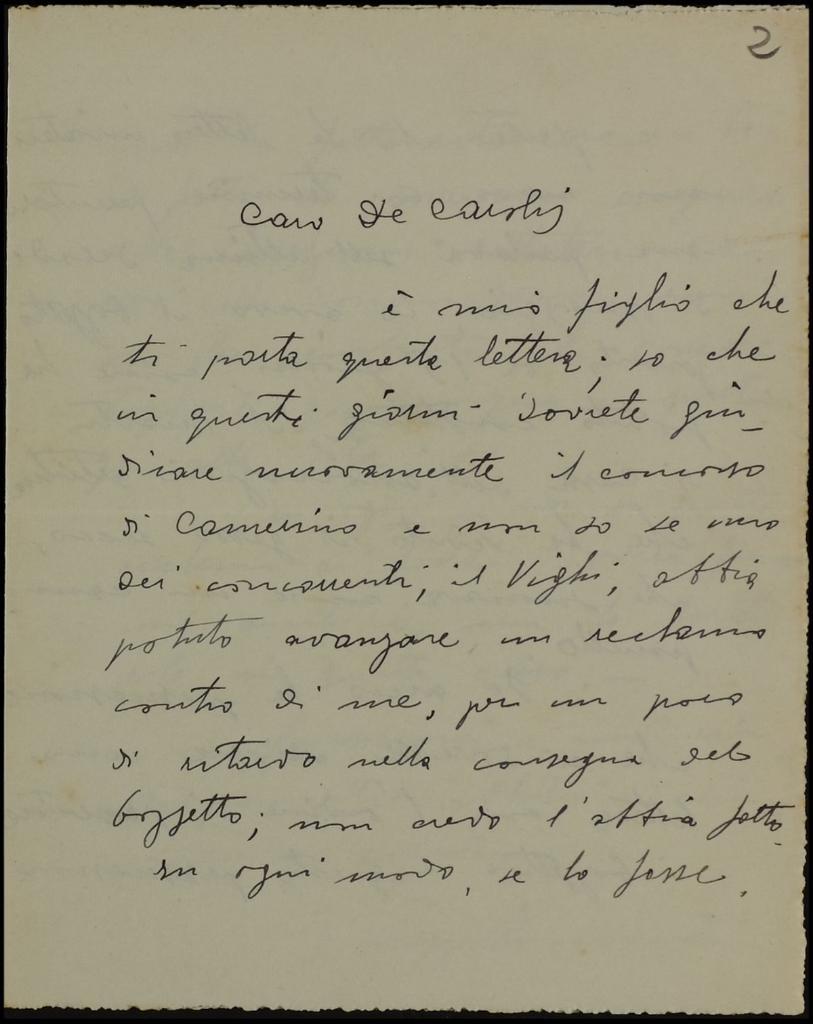 2
Caro De Carolis
è mio figlio che
ti porta questa lettera; so che
in questi giorni dovrete giu_
dicare nuovamente il concorso
di Camerino e non so se uno
dei concorrenti, il Vighi, abbia
potuto avanzare un reclamo
contro di me, per un poco
di ritardo nella consegna del
bozzetto; non credo l'abbia fatto
in ogni modo, se lo fosse,